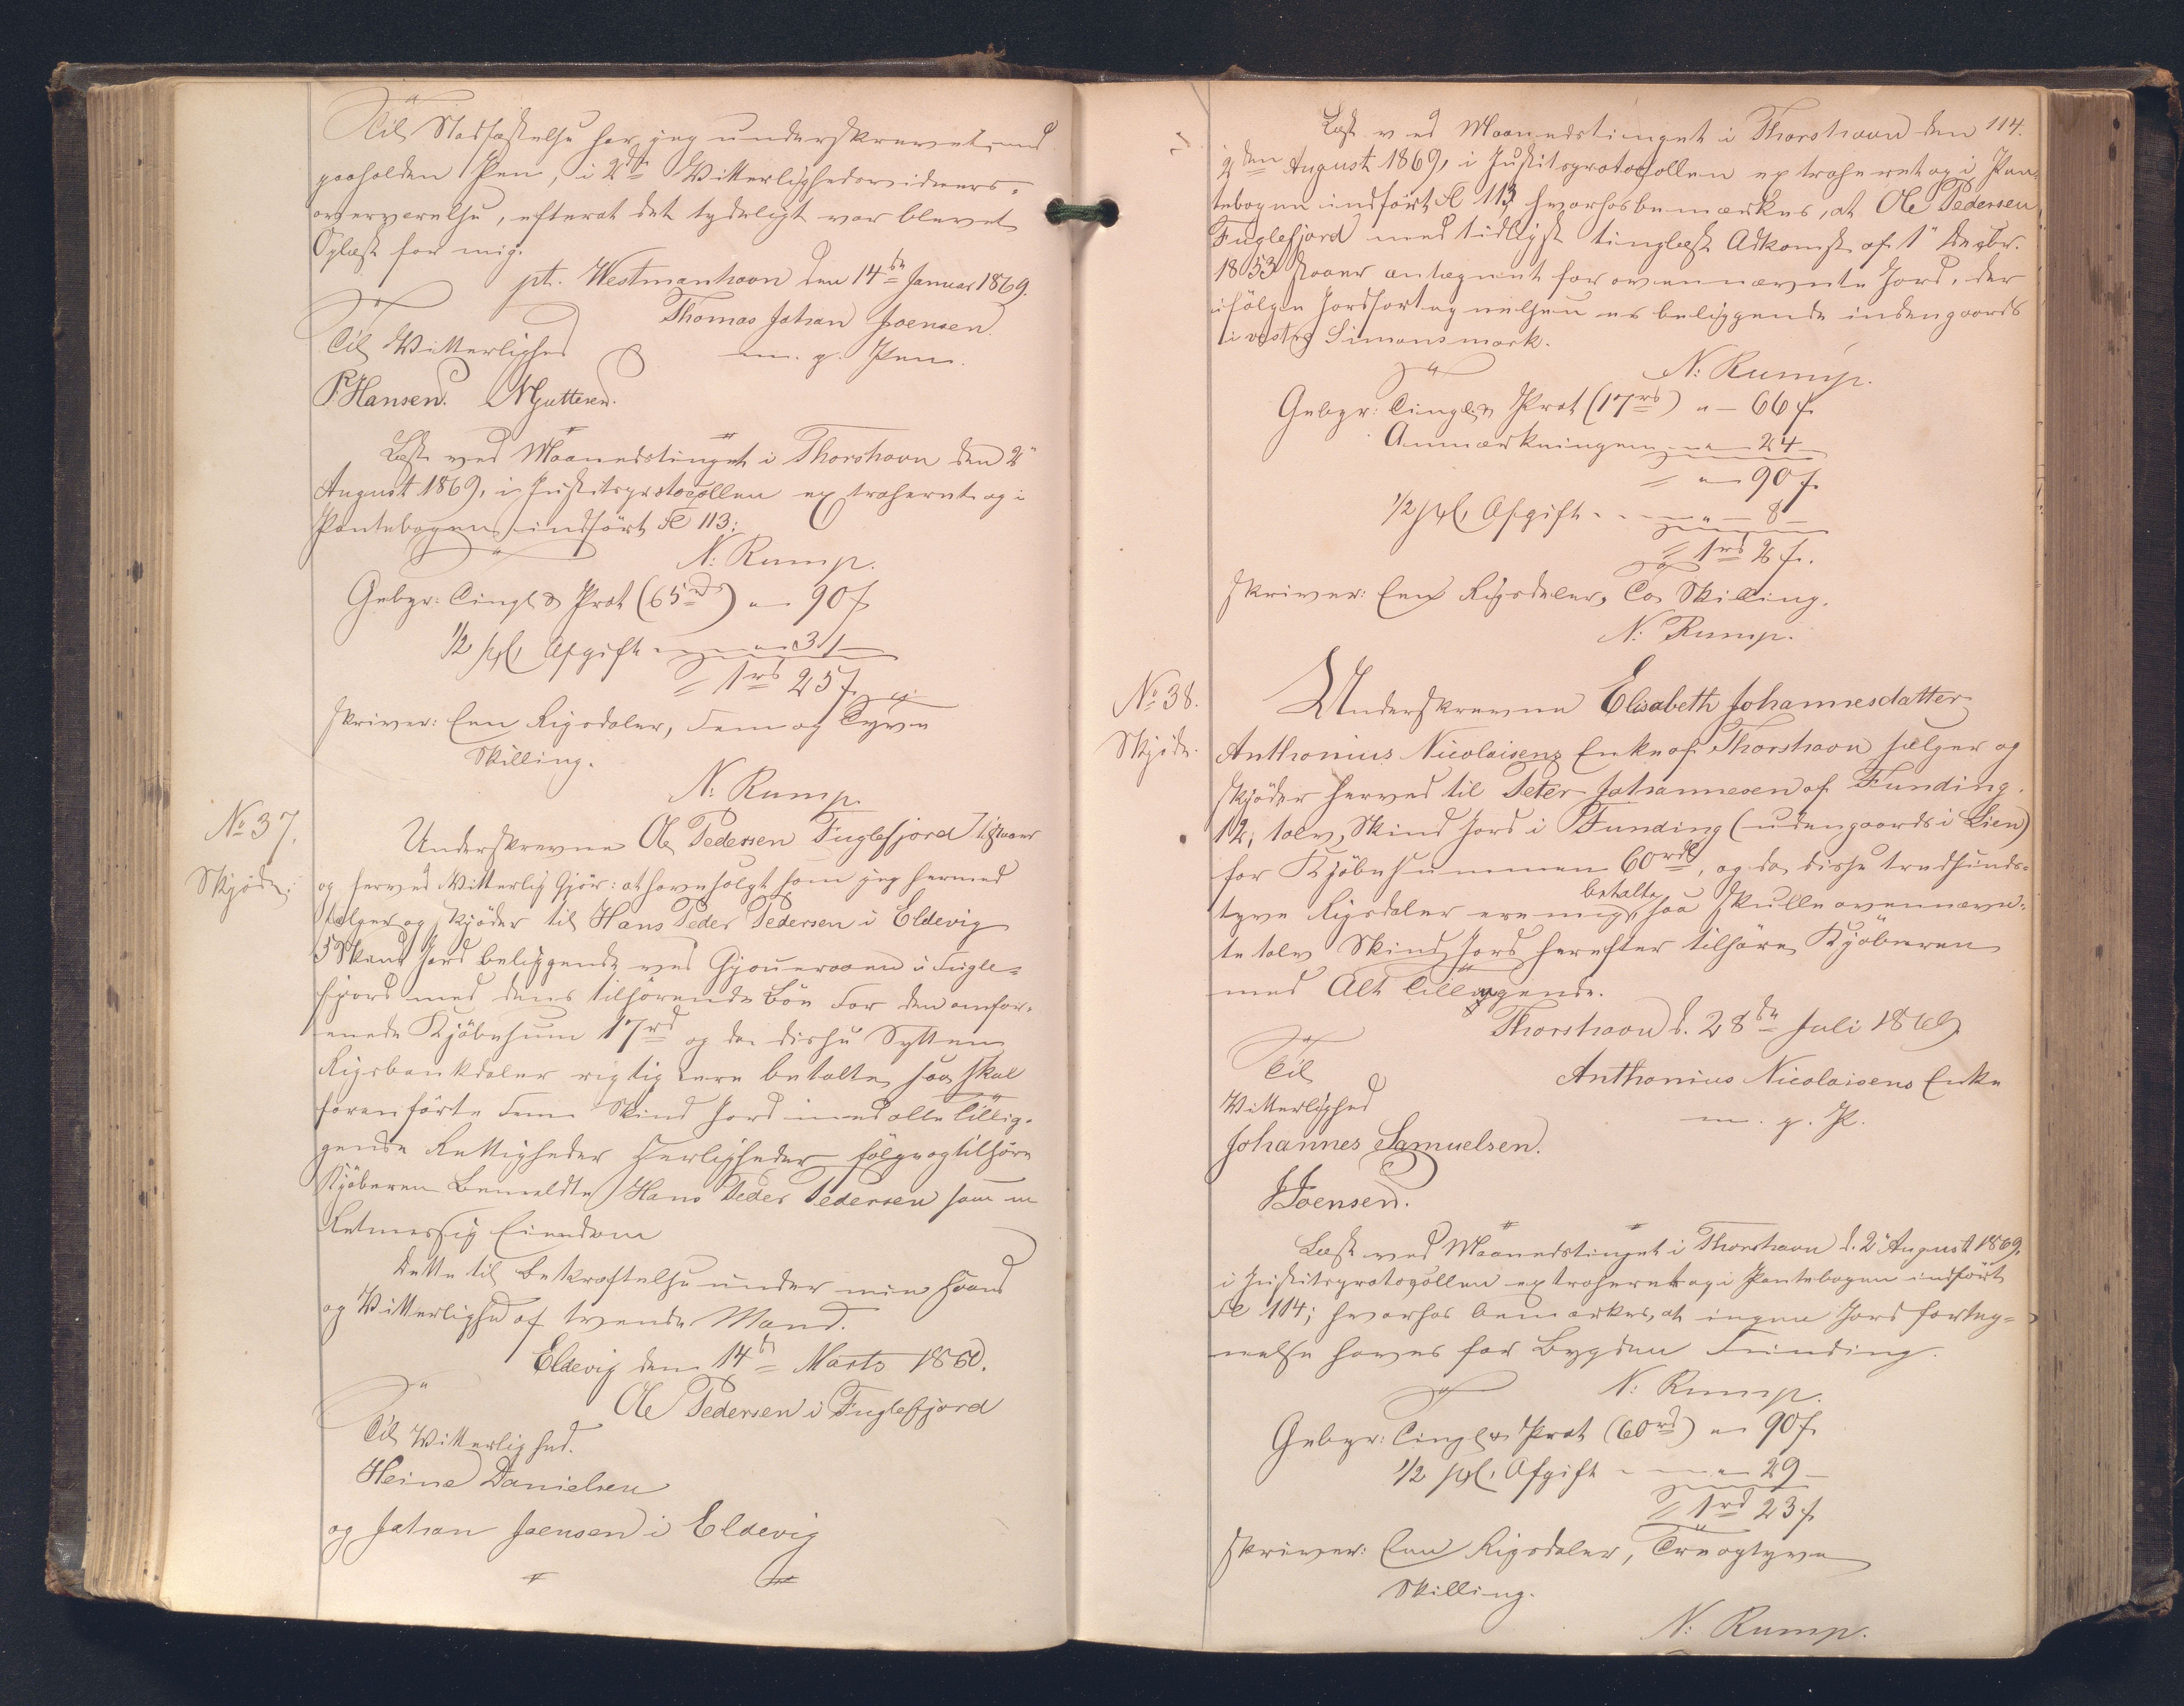 Til Stadfæstelse har jeg underskrevet med
paaholden Pen, i 2de Vitterlighedsvidners
overværelse, efterat det tydeligt var blevet
Oplæst for mig.
pt. Westmanhavn den 14de Januar 1869.
Thomas Johan Joensen.
Til Vitterlighed
m. p. Pen.
P. Hansen. 
Læst ved Maanedstinget i Thorshavn den 2"
August 1869, i Justitsprotocollen extraheret og i
Pantebogen indført Fol 113;
N: Rump.
Gebyr: Tingl & Prot (65rd) " — 90 f
1/2 pCt. Afgift - - " - 31 —
= 1rd 25 f.
skriver: Een Rigsdaler, Fem og Tyve
Skilling.
N: Rump.
No 37.
Skjøde.
Underskrevne Ole Pedersen Fuglefjord tilstaaer
og herved Vitterlig Gjør: at have solgt som jeg hermed
sælger og skjøder til Hans Peder Pedersen i Eldevig
5 Skind Jord beliggende ved Gjoueraaen i Fugle-
fjord med dens tilhørende Bøe For den omfor-
enede Kjøbesum 17rd og da disse Sytten
Rigsbankdaler rigtig ere betalte saa skal
foranførte Fem Skind Jord med alle Tillig-
gende Rettigheder Herligheder følge og tilhøre
Kjøberen Bemeldte Hans Peder Pedersen som en
Retmessig Eiendom
Dette til bekræftelse under min Haand
og Vitterlighed af tvende Mænd.
Eldevig den 14de Marts 1860.
Ole Pedersen i Fuglefjord
Til Vitterlighed.
Heine Danielsen
og Johan Joensen i Eldevig
114.
Læst ved Maanedstinget i Thorshavn den
2den August 1869, i Justitsprotocollen extraheret og i Pan-
tebogen indført Fol 113 hvorhos bemærkes, at Ole Pedersen
Fuglefjord med tidligst tinglæst Adkomst af 1" Decbr.
1853 staaer antegnet for ovennævnte Jord, der
ifølge Jordfortegnelsen er beliggende indengaards
i vestre Simonsmark.
N: Rump.
Gebyr: Tingl & Prot (17rd) " — 66 f.
Anmærkningen - " - 24 —
= " - 90 f.
1/2 pCt. Afgift - - " - 8 —
= 1rd 2 f.
skriver: Een Rigsdaler, To Skilling.
N: Rump.
No 38.
Skjøde.
Underskrevne Elisabeth Johannesdatter
Anthonius Nicolaisens Enke af Thorshavn sælger og
skjøder herved til Peter Johannesen af Funding
12, tolv, Skind Jord i Funding (udengaards i Lien)
for Kjøbesummen 60rdl, og da disse tredsinds-
tyve Rigsdaler ere mig betalte, saa skulle ovennævn-
te tolv Skind Jord herefter tilhøre Kjøberen
med Alt Tilliggende.
Thorshavn d. 28de Juli 1869
Til
Vitterlighed
Anthonius Nicolaisens Enke
m. p. P.
Johannes Samuelsen.
J Joensen.
Læst ved Maanedstinget i Thorshavn d. 2" August 1869,
i Justitsprotocollen extraheret og i Pantebogen indført
Fol 114; hvorhos bemærkes, at ingen Jordforteg-
nelse haves for Bygden Funding.
N: Rump.
Gebyr: Tingl & Prot (60rd) " - 90 f
1/2 pCt. Afgift - - " - 29 —
= 1rd 23 f
skriver: Een Rigsdaler, Treogtyve
Skilling.
N: Rump.